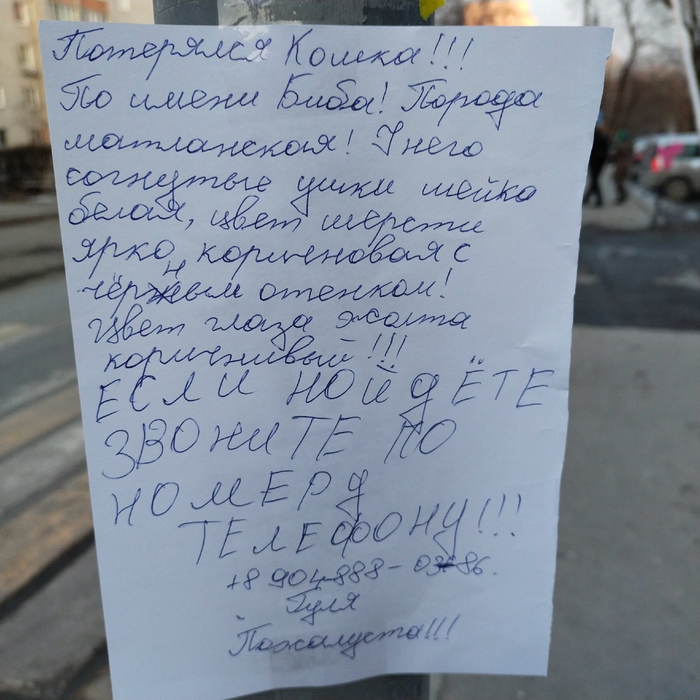 Потерялся Кошка!!!
По имени Биба! Порода
матланская! У него
согнутые ушки шейка
белая, цвет шерсти
ярко коричновая с
чёрным отенком!
Цвет глаза жолта
коричнивый!!!
ЕСЛИ НОЙДЁТЕ
ЗВОНИТЕ ПО
НОМЕРУ
ТЕЛЕФОНУ!!!
+8 904-888-03-86.
Гуля
Пожалуста!!!